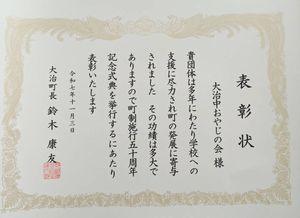 表彰状
大治中おやじの会 様
貴団体は多年にわたり学校への
支援に尽力され町の発展に寄与
されました その功績は多大で
ありますので町制施行五十周年
記念式典を挙行するにあたり
表彰いたします
令和七年十一月三日
大治町長 鈴木康友